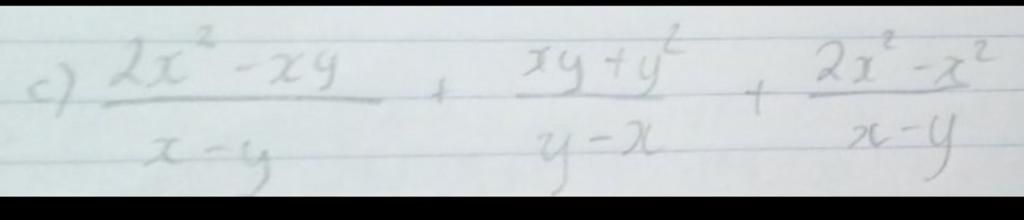 c) (2x² - xy)/(x - y) + (xy + y²)/(y - x) + (2x² - x²)/(x - y)